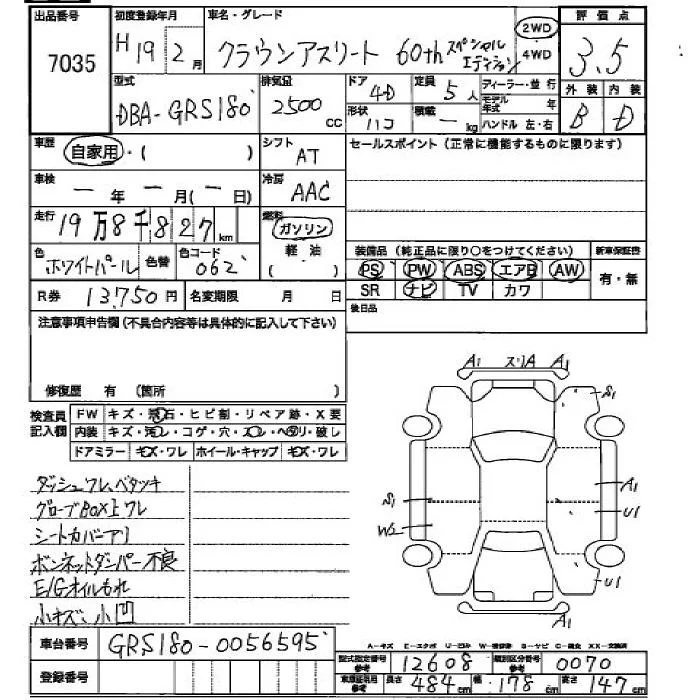 出品番号 7035
初度登録年月 H19年2月
車名・グレード クラウンアスリート 60th スペシャルエディション
2WD・4WD
評価点 3.5
外装 B 内装 D
型式 DBA-GRS180
排気量 2500 cc
ドア 4D
形状 ハコ
定員 5人
積載 ー kg
ディーラー・並行
モデル年式 年
ハンドル 左・右
車歴 自家用・( )
シフト AT
セールスポイント(正常に機能するものに限ります)
車検 ー年ー月(ー日)
冷房 AAC
走行 19万8千827km
燃料 ガソリン 軽・油 ( )
色 ホワイトパール 色替 色コード 062
装備品(純正品に限り○をつけてください) 新車保証書
PS PW ABS エアB AW 有・無
SR ナビ TV カワ
R券 13,750円 名変期限 月 日
後日品
注意事項申告欄(不具合内容等は具体的に記入して下さい)
修復歴 有 (箇所 )
検査員記入欄
FW キズ・飛石・ヒビ割・リペア跡・X要
内装 キズ・汚レ・コゲ・穴・スレ・ヘタリ・破し
ドアミラー キズ・ワレ ホイール・キャップ キズ・ワレ
ダッシュワレ、ベタツキ
グローブBOX上ワレ
シートカバーアリ
ボンネットダンパー不良
E/Gオイルもれ
小キズ、小凹
A1 スリA A1
S1
S1
W2
A1
U1
U1
A1
A-キズ E-エクボ U-凹み W-補修跡 S-サビ C-腐食 XX-交換済
車台番号 GRS180-0056595
登録番号
型式指定番号参考 12608 類別区分番号参考 0070
車検証記載参考 長さ 484cm 幅 178cm 高さ 147cm